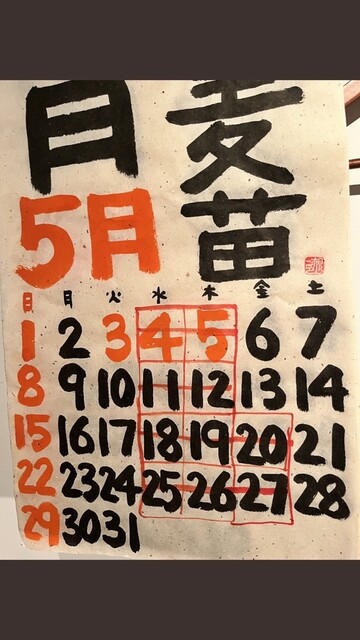 月
麦
苗
5月
日 月 火 水 木 金 土
1 2 3 4 5 6 7
8 9 10 11 12 13 14
15 16 17 18 19 20 21
22 23 24 25 26 27 28
29 30 31